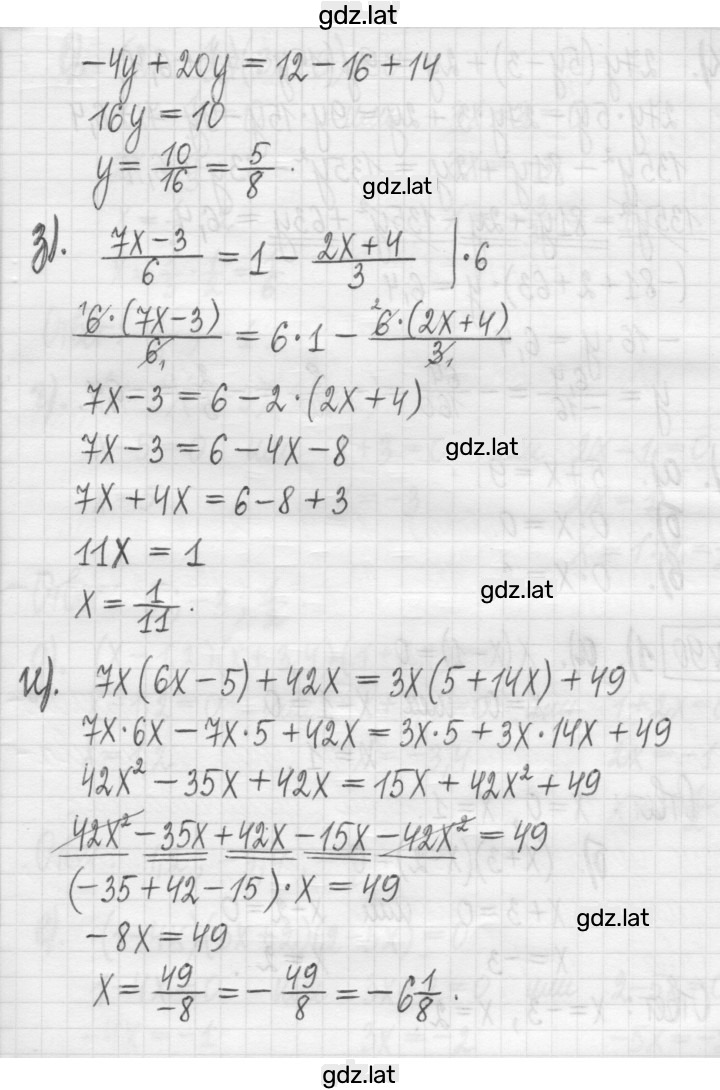 gdz.lat
-4y + 20y = 12 - 16 + 14
16y = 10
y = 10/16 = 5/8.
gdz.lat
з). (7x-3)/6 = 1 - (2x+4)/3 | ·6
¹6·(7x-3)/6₁ = 6·1 - ²6·(2x+4)/3₁
7x-3 = 6-2·(2x+4)
7x-3 = 6-4x-8
gdz.lat
7x+4x = 6-8+3
11x = 1
gdz.lat
x = 1/11.
и). 7x(6x-5)+42x = 3x(5+14x)+49
7x·6x-7x·5+42x = 3x·5+3x·14x+49
42x²-35x+42x = 15x+42x²+49
42x²-35x+42x-15x-42x² = 49
(-35+42-15)·x = 49
gdz.lat
-8x = 49
x = 49/-8 = -49/8 = -6 1/8.
gdz.lat